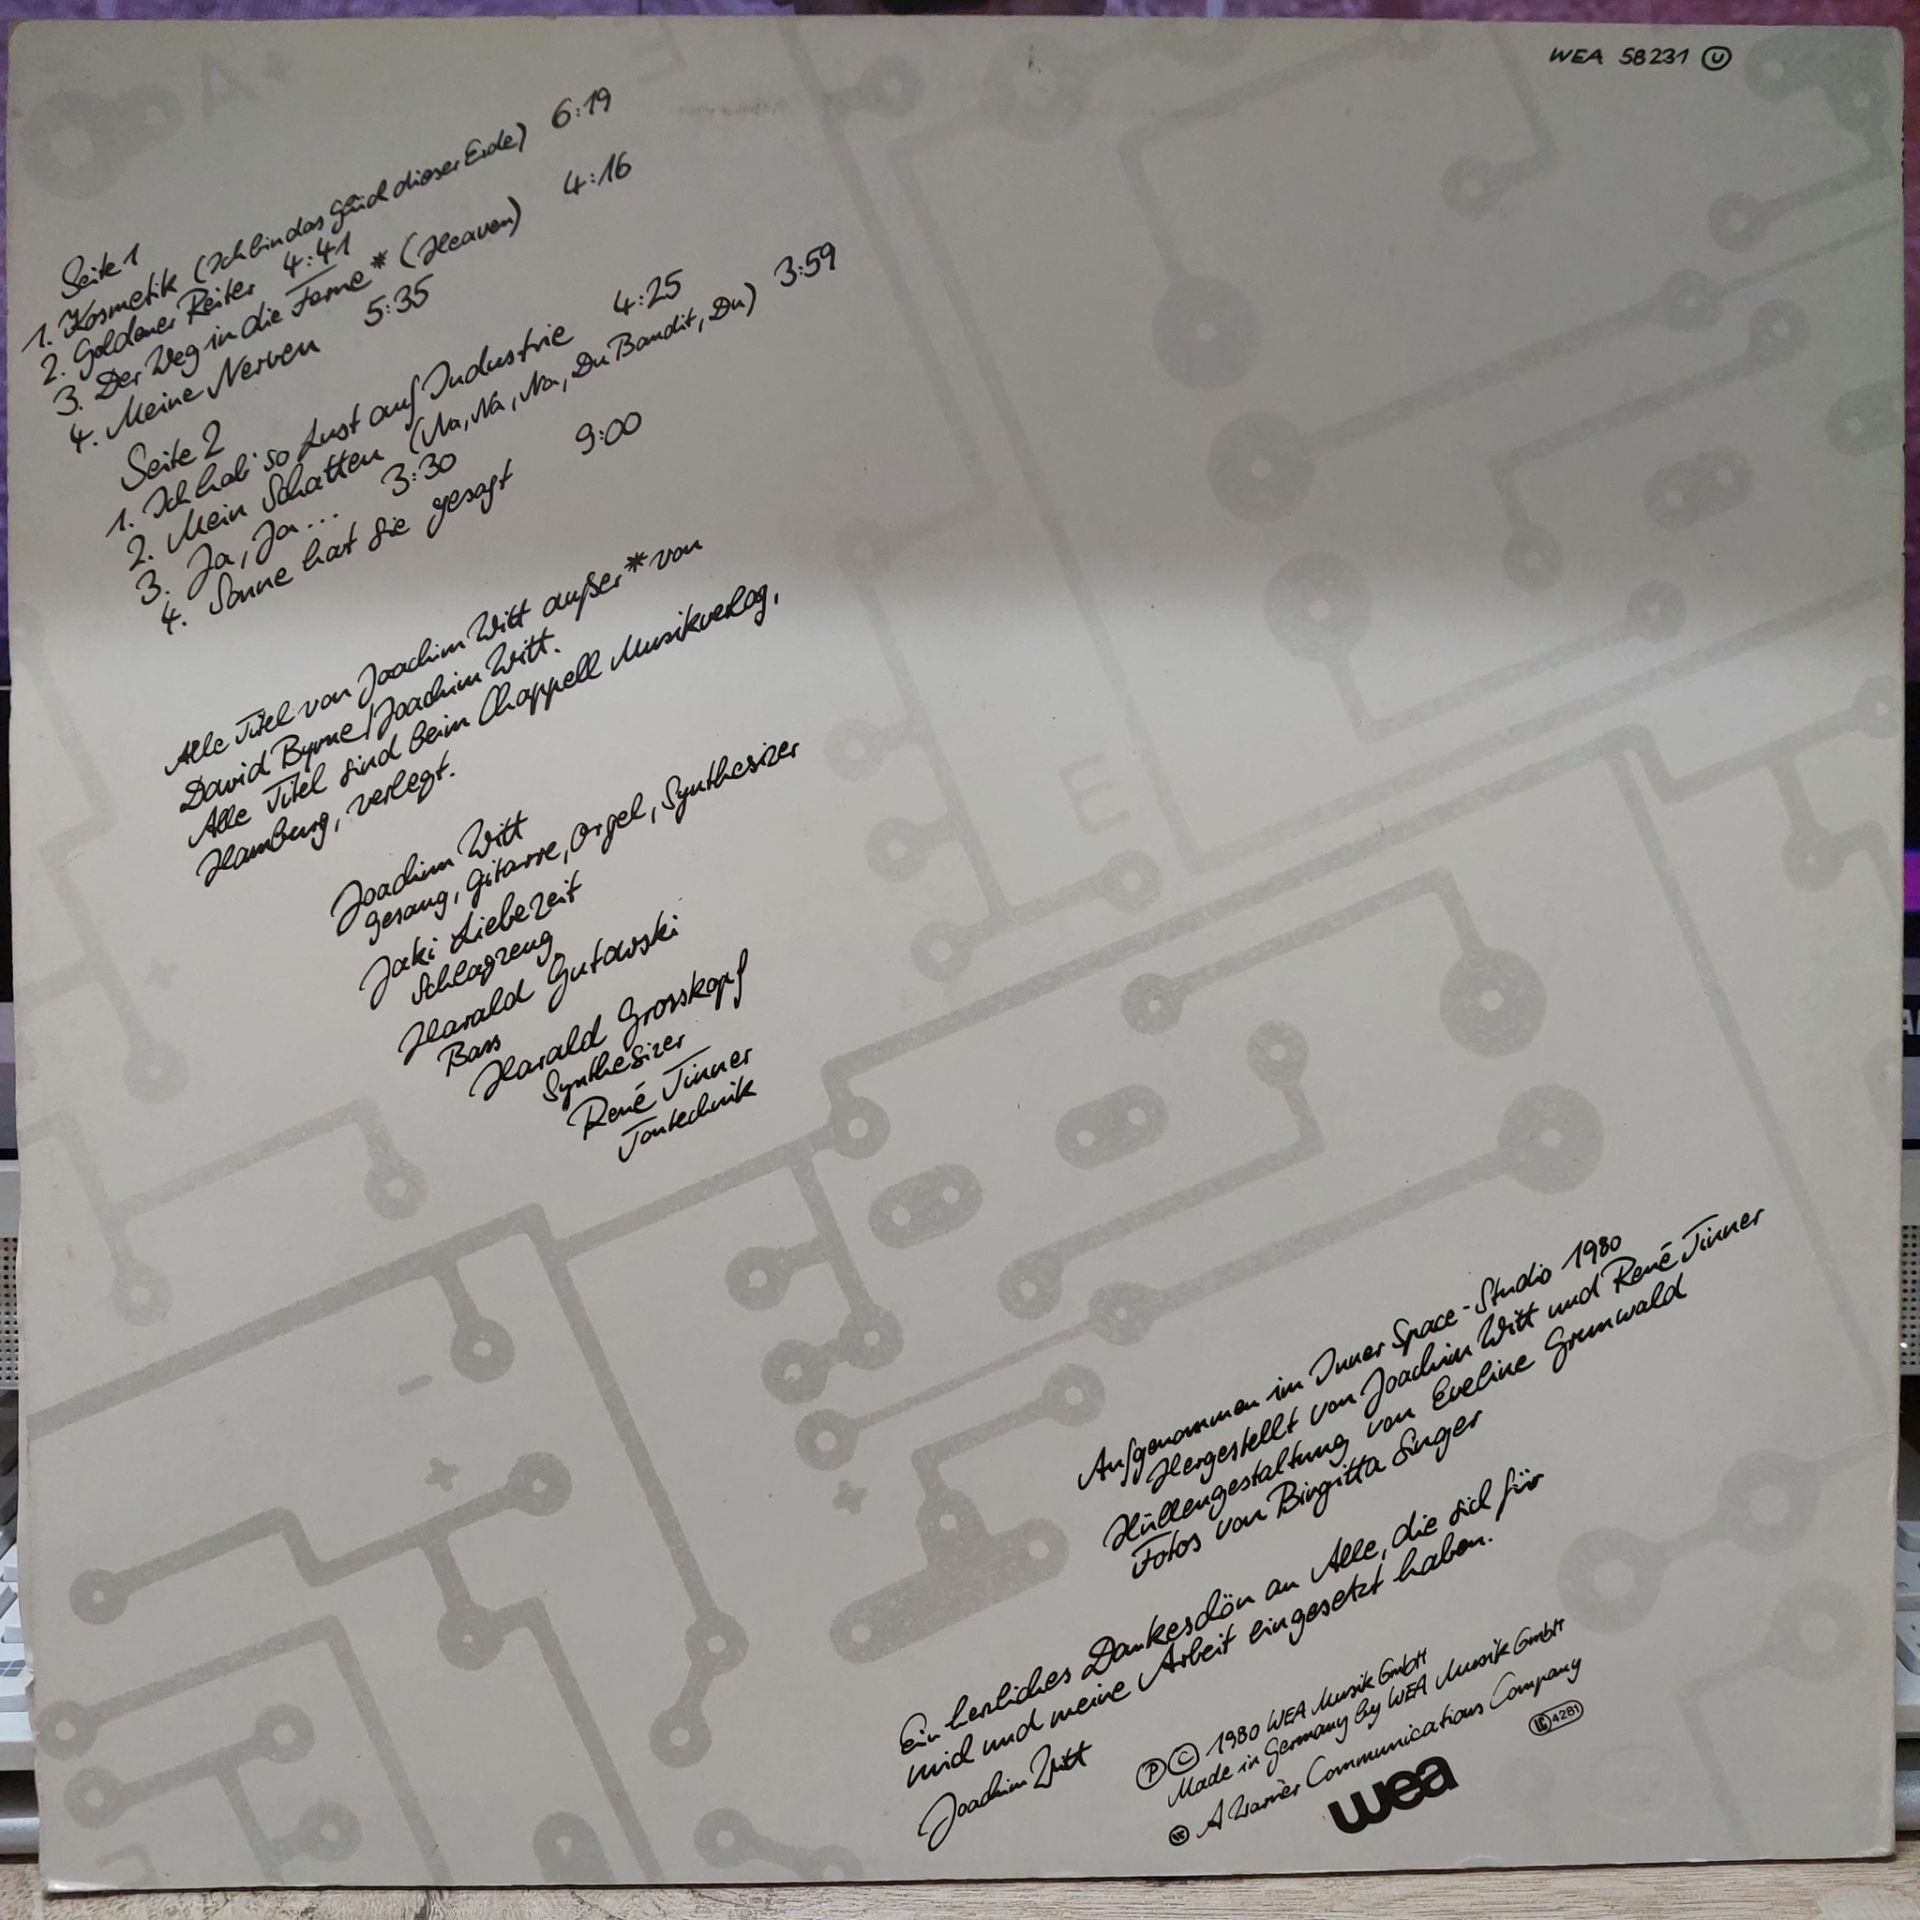 WEA 58231 U
Seite 1
1. Kosmetik (Ich bin das Glück dieser Erde) 6:19
2. Goldener Reiter 4:41
3. Der Weg in die Ferne* (Heaven) 4:16
4. Meine Nerven 5:35
Seite 2
1. Ich hab' so Lust auf Industrie 4:25
2. Mein Schatten (Na, Na, Na, Du Bandit, Du) 3:59
3. Ja, Ja... 3:30
4. Sonne hat sie gesagt 9:00
Alle Titel von Joachim Witt außer * von
David Byrne/Joachim Witt.
Alle Titel sind beim Chappell Musikverlag,
Hamburg, verlegt.
Joachim Witt
Gesang, Gitarre, Orgel, Synthesizer
Jaki Liebezeit
Schlagzeug
Harald Gutowski
Bass
Harald Grosskopf
Synthesizer
René Tinner
Tontechnik
Aufgenommen im Inner Space-Studio 1980
Hergestellt von Joachim Witt und René Tinner
Hüllengestaltung von Eveline Grunwald
Fotos von Birgitta Singer
Ein herzliches Dankesdön an Alle, die sich für
mich und meine Arbeit eingesetzt haben.
Joachim Witt
P C 1980 WEA Musik GmbH
Made in Germany by WEA Musik GmbH
A Warner Communications Company
LC 4281
wea